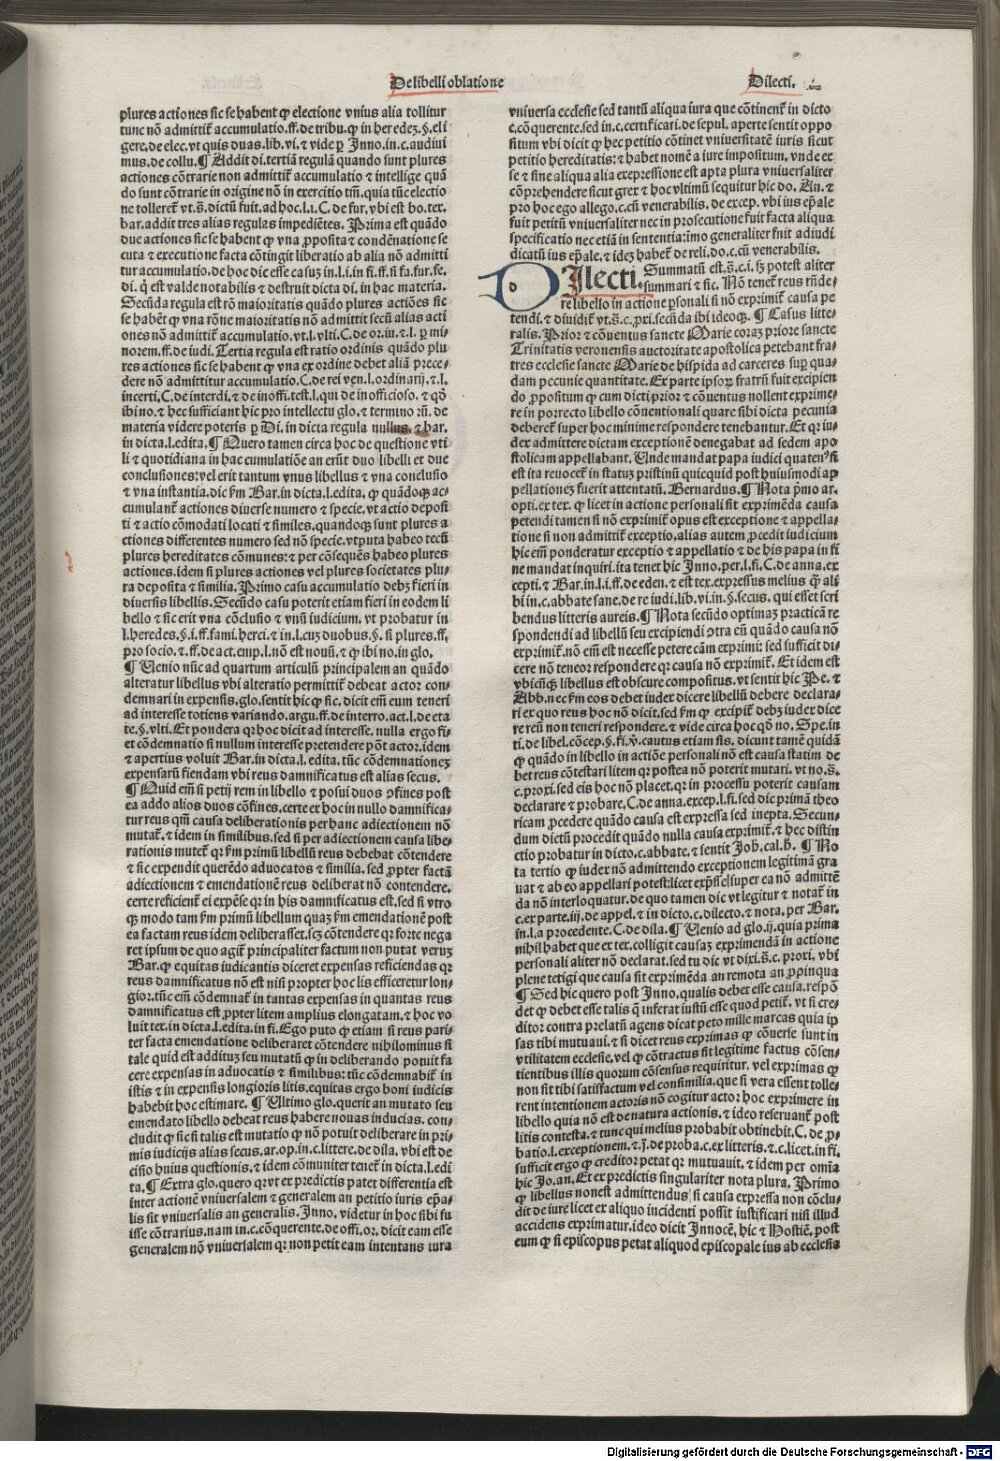 De libelli oblatione
Dilecti.
plures actiones sic se habent ꝙ electione vnius alia tollitur
tunc nō admittit̄ accumulatio.ff.de tribu.ꝙ in heredez.§.eli
gere.de elec.vt quis duas.lib.vi.⁊ vide ꝑ Inno.in.c.audiui
mus.de collu.¶ Addit di.tertiā regulā quando sunt plures
actiones cōtrarie non admittit̄ accumulatio ⁊ intellige quā
do sunt cōtrarie in origine nō in exercitio tm̄.quia tūc electio
ne tolleret̄ vt.s̄.dictū fuit.ad hoc.l.i.C.de fur.vbi est bo.tex.
bar.addit tres alias regulas impediētes. Prima est quādo
due actiones sic se habent ꝙ vna ꝓposita ⁊ condēnatione se
cuta ⁊ executione facta cōtingit liberatio ab alia nō admitti
tur accumulatio.de hoc dic esse casuz in.l.i.in fi.ff.si fa.fur.fe.
di. q̄ est valde notabilis ⁊ destruit dicta di. in hac materia.
Secūda regula est rōm maioritatis quādo plures actiōes sic
se habēt ꝙ vna rōne maioritatis nō admittit secū alias acti
ones nō admittit̄ accumulatio.vt.l.vlti.C.de or.in.⁊ l.ꝑ mi⸗
norem.ff.de iudi. Tertia regula est ratio ordinis quādo plu
res actiones sic se habent ꝙ vna ex ordine debet aliā prece⸗
dere nō admittitur accumulatio.C.de rei ven.l.ordinarij.⁊.l.
incerti.C.de interdi.⁊ de inoffi.test.l.qui de inofficioso. ⁊ qd̄
ibi no.⁊ hec sufficiant hic pro intellectu glo.⁊ termino rū. de
materia videre poteris ꝑ Di. in dicta regula nullus. ⁊ bar.
in dicta.l.edita.¶ Quero tamen circa hoc de questione vti
li ⁊ quotidiana in hac cumulatiōe an erūt duo libelli et due
conclusiones:vel erit tantum vnus libellus ⁊ vna conclusio
⁊ vna instantia.dic fm̄ Bar.in dicta.l.edita. ꝙ quādoqz ac⸗
cumulant̄ actiones diuerse numero ⁊ specie.vt actio deposi
ti ⁊ actio cōmodati locati ⁊ similes.quandoqz sunt plures a
ctiones differentes numero sed nō specie.vtputa habeo tecū
plures hereditates cōmunes:⁊ per cōsequēs habeo plures
actiones.idem si plures actiones vel plures societates plu⸗
ra deposita ⁊ similia. Primo casu accumulatio debz fieri in
diuersis libellis. Secūdo casu poterit etiam fieri in eodem li
bello ⁊ sic erit vna cōclusio ⁊ vnū iudicium. vt probatur in
l.heredes.§.i.ff.fami.herci.⁊ in.l.cuz duobus.§. si plures.ff.
pro socio.⁊.ff.de act.emp.l.nō est nouū.⁊ ꝙ ibi no.in glo.
¶ Uenio nūc ad quartum articulū principalem an quādo
alteratur libellus vbi alteratio permittit̄ debeat actor con⸗
demnari in expensis.glo.sentit hic ꝙ sic. dicit em̄ eum teneri
ad interesse totiens variando.argu.ff.de interro.act.l.de eta
te.§.vlti. Et pondera qꝛ hoc dicit ad interesse. nulla ergo fi⸗
et cōdemnatio si nullum interesse pretendere pōt actor.idem
⁊ apertius voluit Bar.in dicta.l.edita.tūc cōdemnationez
expensarū fiendam vbi reus damnificatus est alias secus.
¶ Quid em̄ si petij rem in libello ⁊ posui duos ɔfines post
ea addo alios duos cōfines.certe ex hoc in nullo damnifica⸗
tur reus qm̄ causa deliberationis per hanc adiectionem nō
mutat̄.⁊ idem in similibus.sed si per adiectionem causa libe⸗
rationis mutet̄ qꝛ fm̄ primū libellū reus debebat cōtendere
⁊ sic expendit querēdo aduocatos ⁊ similia. sed ꝓpter factā
adiectionem ⁊ emendationē reus deliberat nō contendere.
certe reficient̄ ei expēse qꝛ in his damnificatus est.sed si vtro
qz modo tam fm̄ primū libellum quaz fm̄ emendationē post
ea factam reus idem deliberasset.scz cōtendere qꝛ forte nega
ret ipsum de quo agit̄ principaliter factum non putat veruz
Bar.ꝙ equitas iudicantis diceret expensas reficiendas qꝛ
reus damnificatus nō est nisi propter hoc lis efficeretur lon⸗
gior.tūc em̄ cōdemnat̄ in tantas expensas in quantas reus
damnificatus est ꝓpter litem amplius elongatam.⁊ hoc vo
luit tex.in dicta.l.edita.in fi. Ego puto ꝙ etiam si reus pari⸗
ter facta emendatione deliberaret cōtendere nihilominus si
tale quid est addituz seu mutatū ꝙ in deliberando potuit fa
cere expensas in aduocatis ⁊ similibus: tūc cōdemnabit̄ in
istis ⁊ in expensis longioris litis.equitas ergo boni iudicis
habebit hoc estimare. ¶ Ultimo glo.querit an mutato seu
emendato libello debeat reus habere nouas inducias. con⸗
cludit ꝙ sic si talis est mutatio ꝙ nō potuit deliberare in pri⸗
mis iudicijs alias secus.ar.op.in.c.littere.de dila. vbi est de
cisio huius questionis.⁊ idem cōmuniter tenet̄ in dicta.l.edi
ta.¶ Extra glo.quero qꝛ vt ex predictis patet differentia est
inter actionē vniuersalem ⁊ generalem an petitio iuris epa⸗
lis sit vniuersalis an generalis. Inno. videtur in hoc sibi fu
isse cōtrarius.nam in.c.cōquerente.de offi.or. dicit eam esse
generalem nō vniuersalem qꝛ non petit eam intentans iura
vniuersa ecclesie sed tantū aliqua iura que cōtinent̄ in dicto
c.cōquerente.sed in.c.certificari.de sepul. aperte sentit oppo
situm vbi dicit ꝙ hec petitio cōtinet vniuersitatē iuris sicut
petitio hereditatis:⁊ habet nomē a iure impositum. vnde ex
se ⁊ sine aliqua alia exepressione est apta plura vniuersaliter
cōprehendere sicut grex ⁊ hoc vltimū sequitur hic do. An. ⁊
pro hoc ego allego.c.cū venerabilis. de excep. vbi ius epale
fuit petitū vniuersaliter nec in prosecutione fuit facta aliqua
specificatio nec etiā in sententia:imo generaliter fuit adiudi
dicatū ius epale.⁊ idez habet̄ de reli.do.c.cū venerabilis.
DIlecti. Summatū est.s̄.c.i. sz potest aliter
summari ⁊ sic. Nō tenet̄ reus rn̄de⸗
re libello in actione ꝑsonali si nō exprimit̄ causa pe
tendi.⁊ diuidit̄ vt.s̄.c.pxi.secūda ibi ideoqz. ¶ Casus litte⸗
ralis. Prior ⁊ cōuentus sancte Marie coraz priore sancte
Trinitatis veronensis auctoritate apostolica petebant fra⸗
tres ecclesie sancte Marie de hispida ad carceres suꝑ qua⸗
dam pecunie quantitate. Ex parte ipsoꝝ fratrū fuit excipien
do ꝓpositum ꝙ cum dicti prior ⁊ cōuentus nollent exprime⸗
re in porrecto libello cōuentionali quare sibi dicta pecunia
deberet̄ super hoc minime respondere tenebantur. Et qꝛ iu⸗
dex admittere dictam exceptionē denegabat ad sedem apo
stolicam appellabant. Unde mandat papa iudici quatenꝰ si
est ita reuocet̄ in statuz pristinū quicquid post huiusmodi ap
pellationez fuerit attentatū. Bernardus. ¶ Nota pmo ar.
opti.ex tex. ꝙ licet in actione personali sit exprimēda causa
petendi tamen si nō exprimit̄ opus est exceptione ⁊ appella⸗
tione si non admittit̄ exceptio.alias autem ꝓcedit iudicium
hic em̄ ponderatur exceptio ⁊ appellatio ⁊ de his papa in fi
ne mandat inquiri.ita tenet hic Inno.per.l.fi.C.de anna.ex
cepti.⁊ Bar.in.l.i.ff.de eden.⁊ est tex.expressus melius q̄ ali
bi in.c.abbate sane.de re iudi.lib.vi.in.§.secus. qui esset scri
bendus litteris aureis.¶ Nota secūdo optimaz practicā re
spondendi ad libellū seu excipiendi ɔtra eū quādo causa nō
exprimit̄.nō em̄ est necesse petere cām exprimi: sed sufficit di⸗
cere nō teneor respondere qꝛ causa nō exprimit̄. Et idem est
vbicūqz libellus est obscure compositus.vt sentit hic Pe. ⁊
Abb.nec fm̄ eos debet iudex dicere libellū debere declara⸗
ri ex quo reus hoc nō dicit.sed fm̄ ꝙ excipit̄ debz iudex dice
re reū non teneri respondere.⁊ vide circa hoc qd̄ no. Spe.in
ti.de libel.cōcep.§.fi.ꝟ.cautus etiam sis. dicunt tamē quidā
ꝙ quādo in libello in actiōe personali nō est causa statim de
bet reus cōtestari litem qꝛ postea nō poterit mutari. vt no.s̄.
c.proxi.sed eis hoc nō placet.qꝛ in processu poterit causam
declarare ⁊ probare. C.de anna.excep.l.fi.sed dic primā theo
ricam ꝓcedere quādo causa est expressa sed inepta. Secun⸗
dum dictū procedit quādo nulla causa exprimit̄.⁊ hec distin
ctio probatur in dicto.c.abbate.⁊ sentit Joh̄.cal.h̄. ¶ No
ta tertio ꝙ iudex nō admittendo exceptionem legitimā gra
uat ⁊ ab eo appellari potest:licet expsse super ea nō admittē
da nō interloquatur.de quo tamen dic vt legitur ⁊ notat̄ in
c.ex parte.iij.de appel.⁊ in dicto.c.dilecto.⁊ nota. per Bar.
in.l.a procedente.C.de dila.¶ Uenio ad glo.ij.quia prima
nihil habet que ex tex.colligit causaz exprimendā in actione
personali aliter nō declarat.sed tu dic vt dixi.s̄.c. proxi. vbi
plene tetigi que causa sit exprimēda an remota an ꝓpinqua
¶ Sed hic quero post Inno.qualis debet esse causa.respō
det ꝙ debet esse talis q̄ inferat iustū esse quod petit̄. vt si cre⸗
ditor contra prelatū agens dicat peto mille marcas quia ip
sas tibi mutuaui. ⁊ si dicet reus exprimas ꝙ cōuerse sunt in
vtilitatem ecclesie.vel ꝙ cōtractus sit legitime factus cōsen⸗
tientibus illis quorum cōsensus requiritur. vel exprimas ꝙ
non sit tibi satisfactum vel consimilia.que si vera essent tolle⸗
rent intentionem actoris nō cogitur actor hoc exprimere in
libello quia nō est de natura actionis.⁊ ideo reseruant̄ post
litis contesta.⁊ tunc qui melius probabit obtinebit.C. de ꝓ⸗
batio.l.exceptionem.⁊.j̄.de proba.c.ex litteris.⁊.c.licet.in fi.
sufficit ergo ꝙ creditor petat qꝛ mutuauit. ⁊ idem per omia
hic Jo.an. Et ex predictis singulariter nota plura. Primo
ꝙ libellus non est admittendus si causa expressa non cōclu⸗
dit de iure licet ex aliquo incidenti possit iustificari nisi illud
accidens exprimatur.ideo dicit Innocē. hic ⁊ Hostiē. post
eum ꝙ si episcopus petat aliquod episcopale ius ab ecclesia
Digitalisierung gefördert durch die Deutsche Forschungsgemeinschaft - DFG